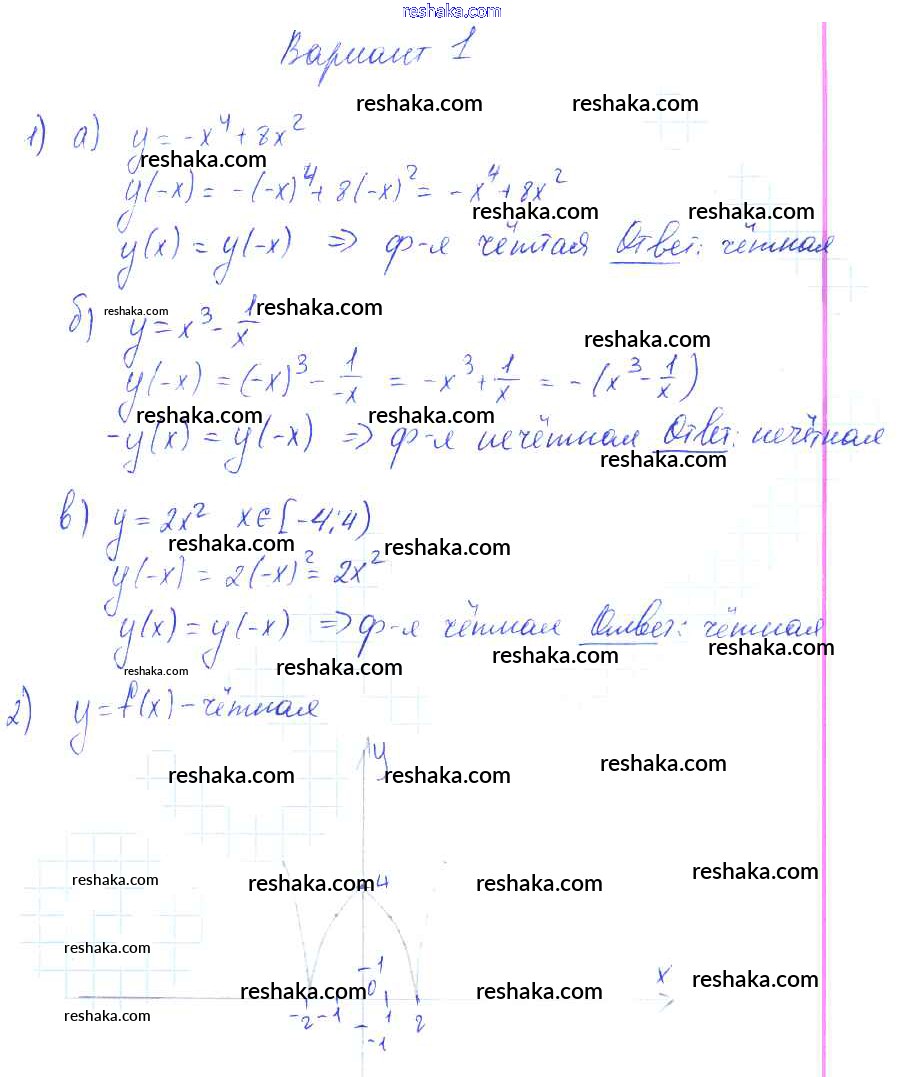 reshaka.com
Вариант 1
reshaka.com reshaka.com
1) а) y = -x⁴ + 8x²
reshaka.com
y(-x) = -(-x)⁴ + 8(-x)² = -x⁴ + 8x²
reshaka.com reshaka.com
y(x) = y(-x) => ф-я чётная Ответ: чётная
reshaka.com reshaka.com
б) y = x³ - 1/x
reshaka.com
y(-x) = (-x)³ - 1/-x = -x³ + 1/x = -(x³ - 1/x)
reshaka.com reshaka.com
-y(x) = y(-x) => ф-я нечётная Ответ: нечётная
reshaka.com
в) y = 2x² x ∈ [-4; 4)
reshaka.com reshaka.com
y(-x) = 2(-x)² = 2x²
y(x) = y(-x) => ф-я чётная Ответ: чётная
reshaka.com reshaka.com reshaka.com reshaka.com
2) y = f(x) - чётная
y
reshaka.com reshaka.com reshaka.com
4
reshaka.com reshaka.com reshaka.com reshaka.com
reshaka.com
1
0 x
reshaka.com reshaka.com reshaka.com
reshaka.com
-2 -1 1 2
-1